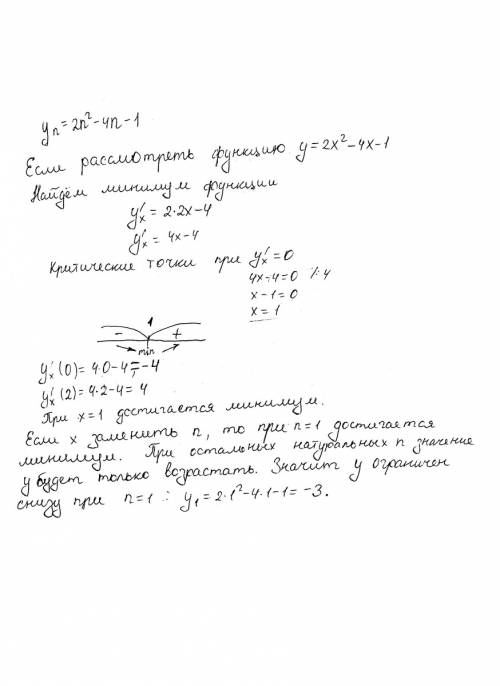 yₙ = 2n² - 4n - 1
Если рассмотреть функцию y = 2x² - 4x - 1
Найдём минимум функции
y'ₓ = 2·2x - 4
y'ₓ = 4x - 4
Критические точки при y'ₓ = 0
4x - 4 = 0 /:4
x - 1 = 0
x = 1
1
- +
min
y'ₓ(0) = 4·0 - 4 = -4
y'ₓ(2) = 4·2 - 4 = 4
При x = 1 достигается минимум.
Если x заменить n, то при n = 1 достигается
минимум. При остальных натуральных n значение
y будет только возрастать. Значит y ограничен
снизу при n = 1 : y₁ = 2·1² - 4·1 - 1 = -3.